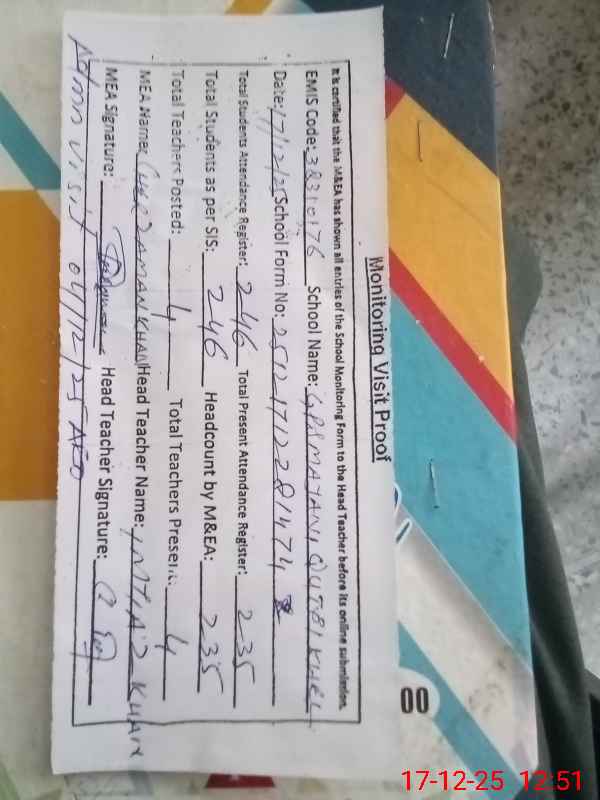 Monitoring Visit Proof
It is certified that the M&EA has shown all entries of the School Monitoring Form to the Head Teacher before its online submission.
EMIS Code: 38310176 School Name: GPS MAYANI QUTBI KHEL
Date: 17/12/25 School Form No: 25121712281474
Total Students Attendance Register: 246 Total Present Attendance Register: 235
Total Students as per SIS: 246 Headcount by M&EA: 235
Total Teachers Posted: 4 Total Teachers Present: 4
MEA Name: ZAMAN KHAN Head Teacher Name: IMTIAZ KHAN
MEA Signature: Head Teacher Signature:
Admn visit 04/12/25
00
17-12-25 12:51